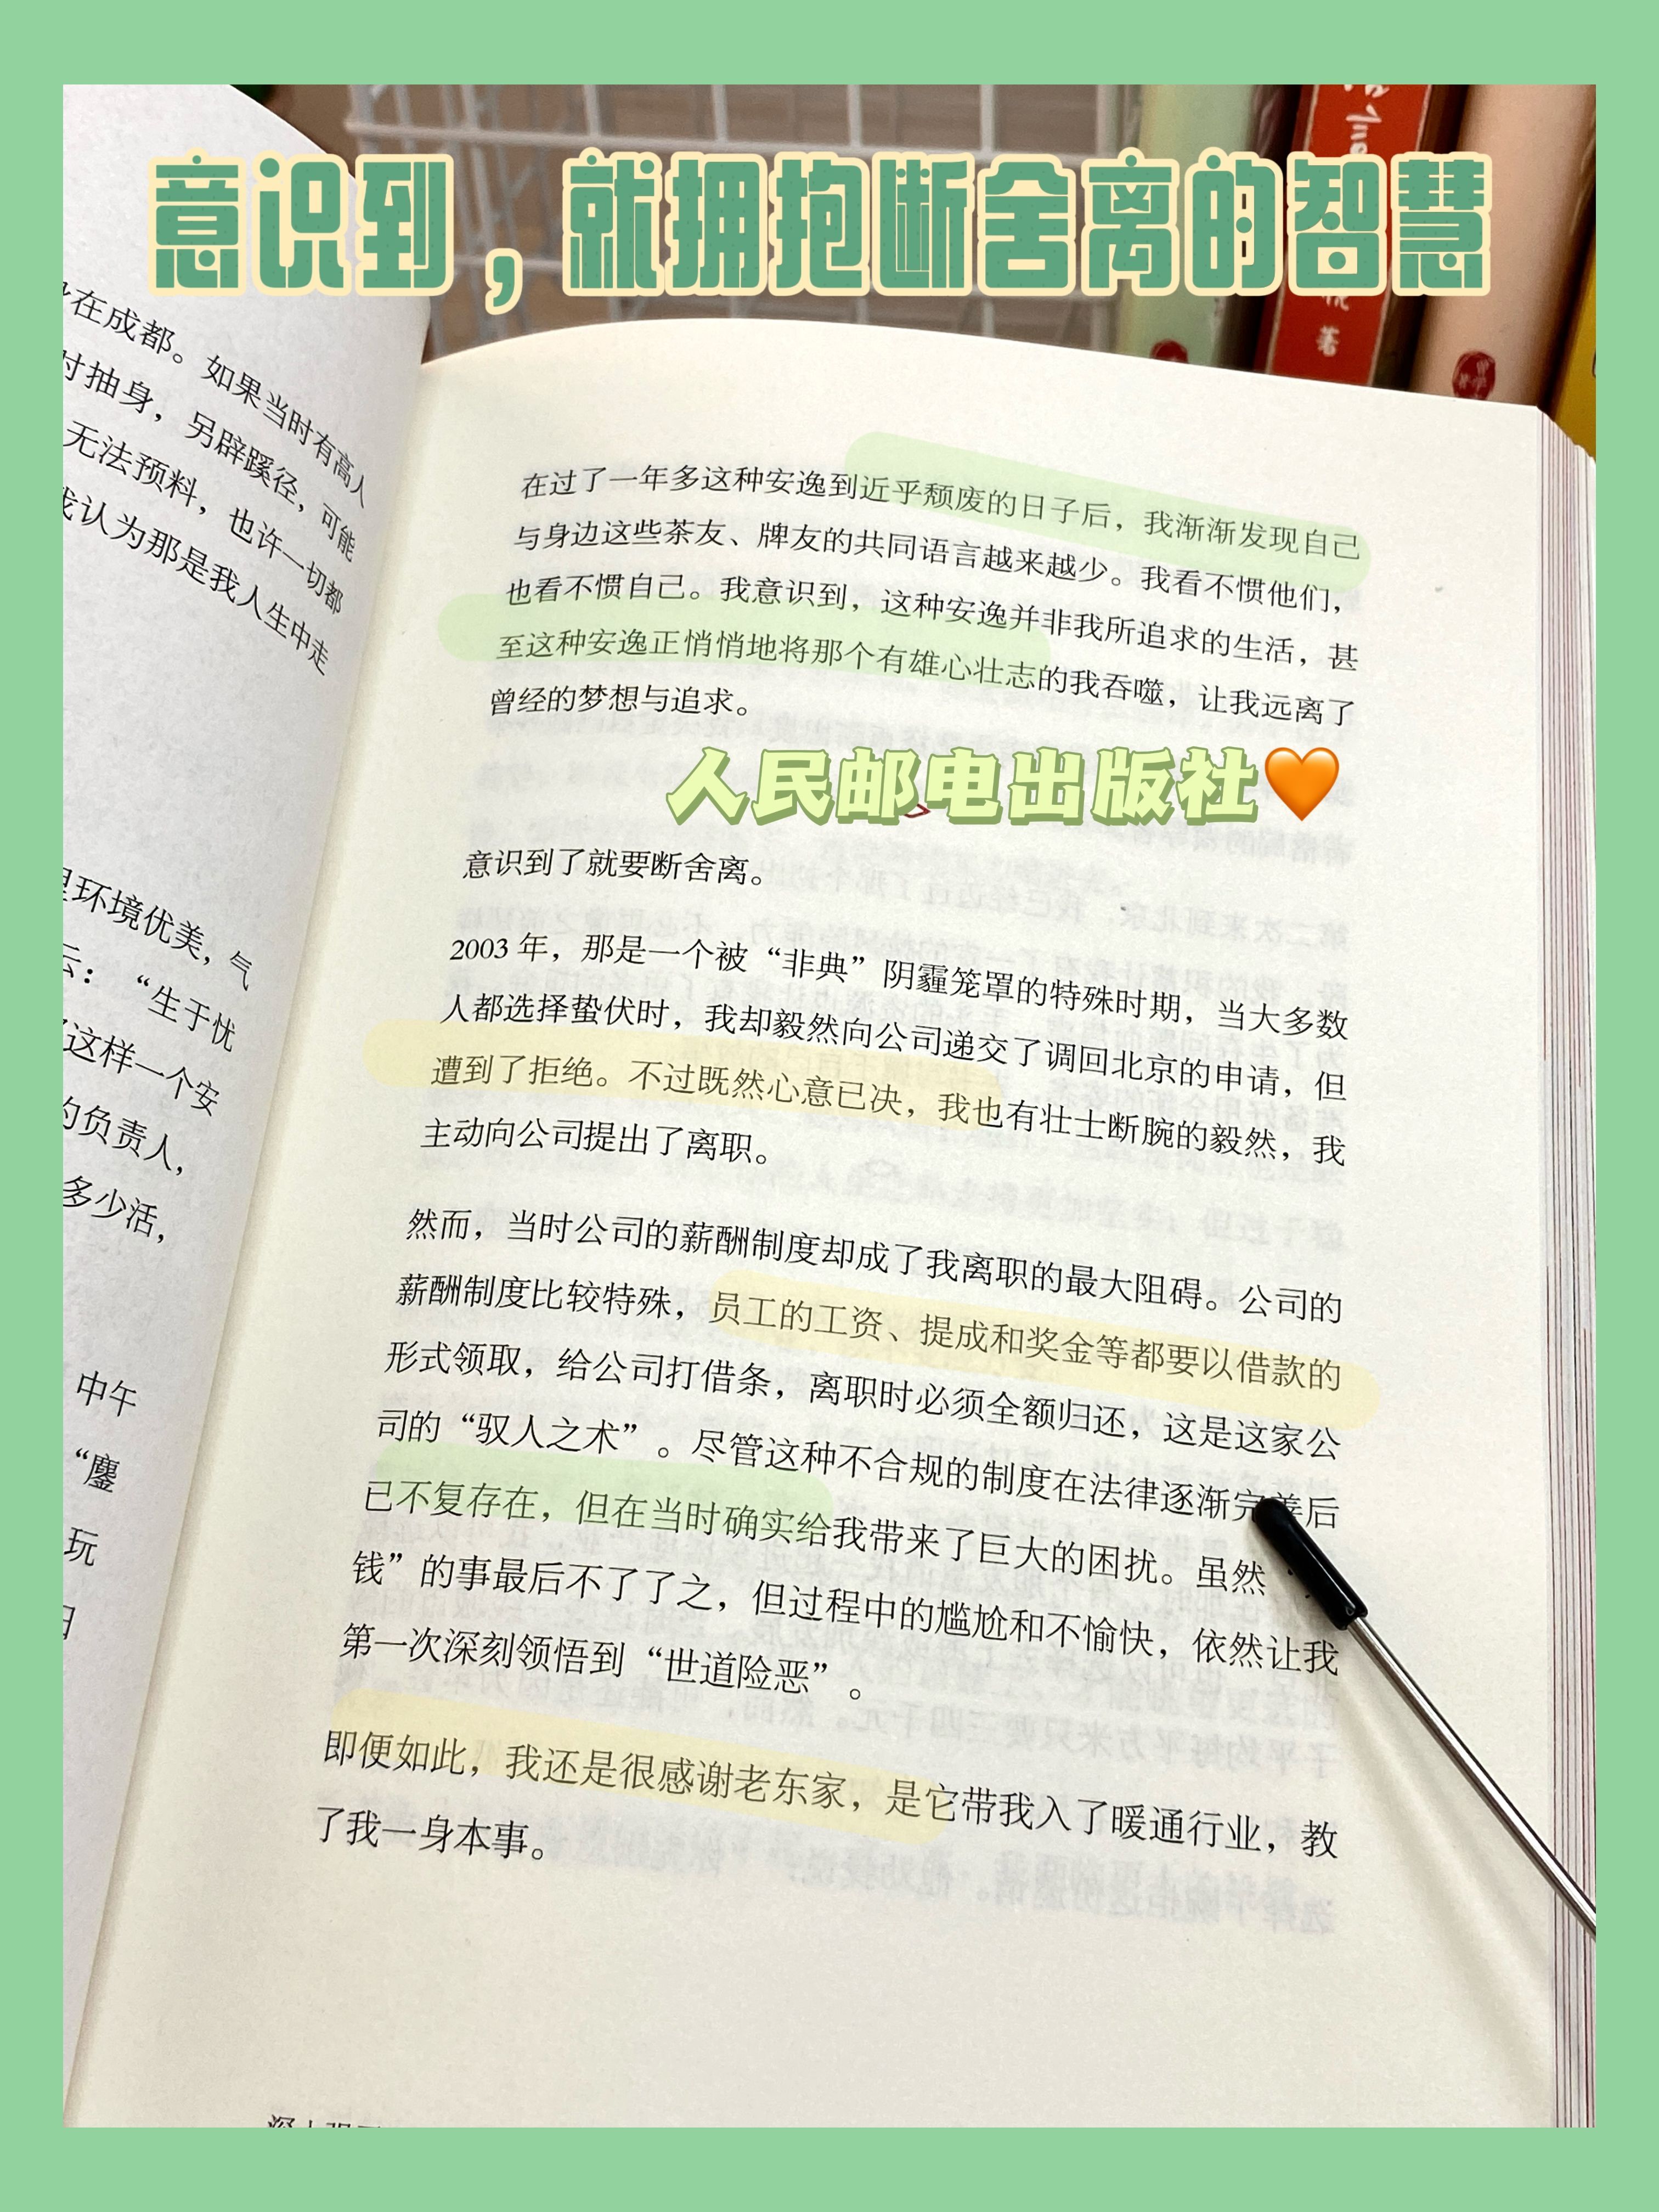 意识到，就拥抱断舍离的智慧
著
在成都。如果当时有高人
时抽身，另辟蹊径，可能
无法预料，也许一切都
我认为那是我人生中走
里环境优美，气
云：“生于忧
了这样一个安
的负责人，
多少活，
中午
“鏖
玩
在过了一年多这种安逸到近乎颓废的日子后，我渐渐发现自己
与身边这些茶友、牌友的共同语言越来越少。我看不惯他们，
也看不惯自己。我意识到，这种安逸并非我所追求的生活，甚
至这种安逸正悄悄地将那个有雄心壮志的我吞噬，让我远离了
曾经的梦想与追求。
人民邮电出版社🧡
意识到了就要断舍离。
2003 年，那是一个被“非典”阴霾笼罩的特殊时期，当大多数
人都选择蛰伏时，我却毅然向公司递交了调回北京的申请，但
遭到了拒绝。不过既然心意已决，我也有壮士断腕的毅然，我
主动向公司提出了离职。
然而，当时公司的薪酬制度却成了我离职的最大阻碍。公司的
薪酬制度比较特殊，员工的工资、提成和奖金等都要以借款的
形式领取，给公司打借条，离职时必须全额归还，这是这家公
司的“驭人之术”。尽管这种不合规的制度在法律逐渐完善后
已不复存在，但在当时确实给我带来了巨大的困扰。虽然
钱”的事最后不了了之，但过程中的尴尬和不愉快，依然让我
第一次深刻领悟到“世道险恶”。
即便如此，我还是很感谢老东家，是它带我入了暖通行业，教
了我一身本事。